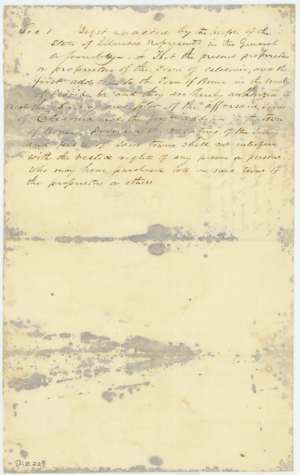 Sec 1 Be it enacted by the people of the
State of Illinois Represented in the General
Assembly — That the present proprietor
or proprietors of the Town of Caledonia, and the
first addition to the Town of Rome in the County
of be and they are hereby authorized to
the plan of the afforesaid Town
of Caledonia and the first addition to the Town
of Rome, Provided the vacating of the
and of Said towns shall not interfere
with the vested rights of any person or persons
who may have purchased lots in said towns of
the proprietor or others